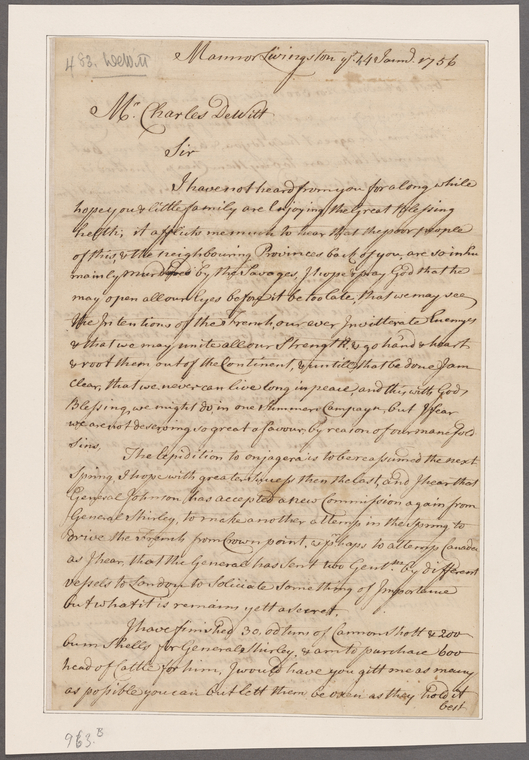 483. DeWitt
Mannor Livingston ye. 44 Jannd. 1756
Mr. Charles DeWitt
Sir
I have not heard from you for a long while
hope you & little family are Enjoying the Great Blessing
health; it afflicts me much to hear that the poor people
of this, & the neighbouring Provinces back of you, are so inhu
mainly murdered by the Savages, I hope & pray God that he
may open all our Eyes before it be too late, that we may see
the Intentions of the French, our ever Invitterate Enemys
& that we may unite all our Strength, & go hand & heart
& root them out of the Continent, & untill that be done I am
clear, that we never can live long in peace, and this with Gods
Blessing, we might do in one Summers Campagn, but I fear
we are not deserving so great a favour, by reason of our manefold
Sins.
The Expidition to engagera is to be reassumed the next
Spring, I hope with greater Sucess then the last, and I hear that
General Johnson, has accepted a new Commission again from
General Shirley, to make another attemp in the Spring to
drive the French from Crown point, & phaps to attemp Canada
as I hear, that the General has Sent two Gentmn. by different
vessels to London to Soliciate Something of Importance
but what it is remains yett a secret.
I have finished 30. odd tuns of Cannon Shott & 200
bum Shells for General Shirley, & am to purchase 600
head of Cattle for him, I would have you gitt me as many
as possible you can but lett them be oxen as they hold it
best
963.8